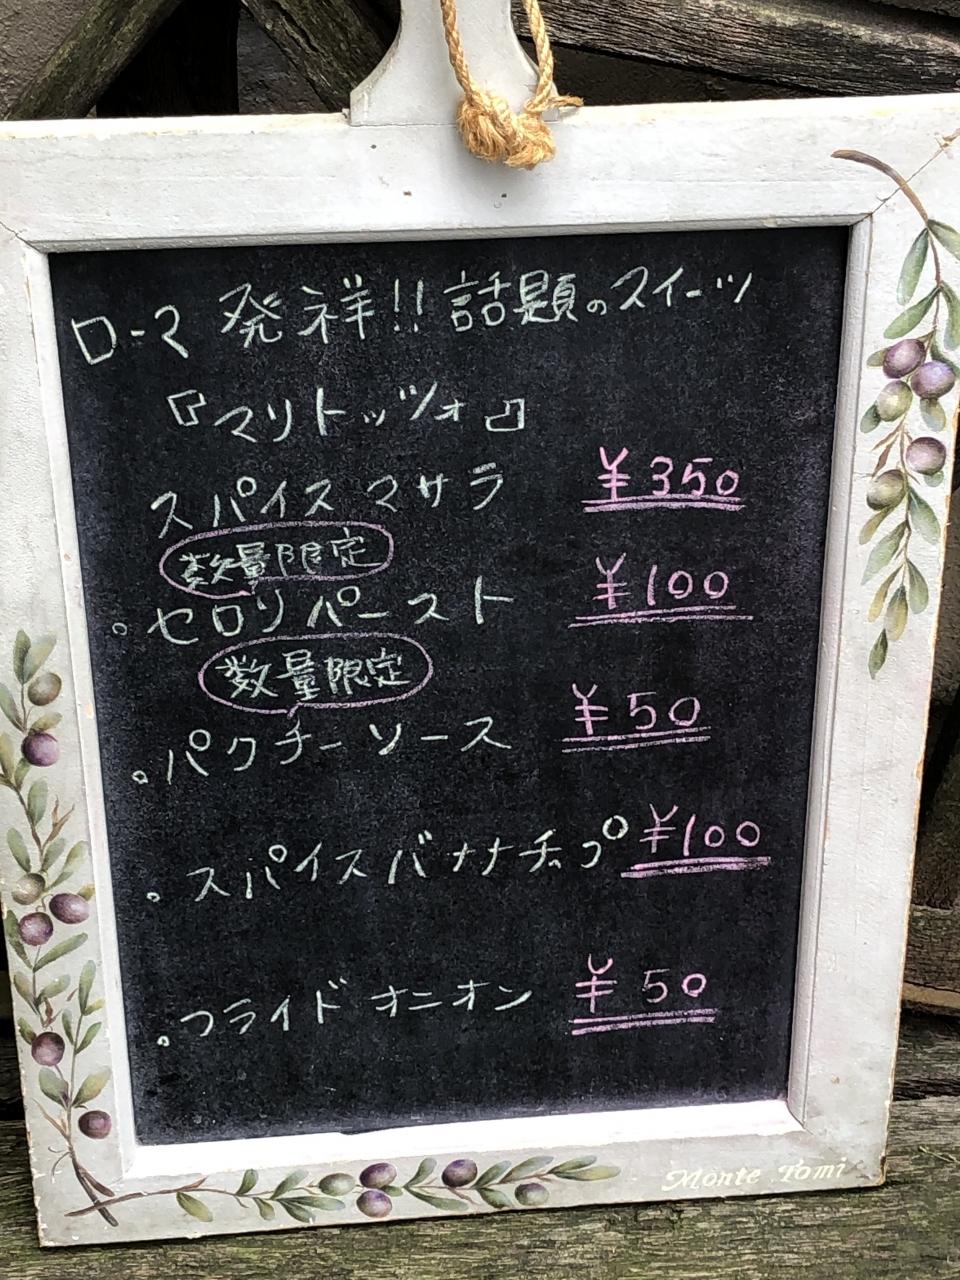 ローマ 発祥!! 話題のスイーツ
『マリトッツォ』
スパイスマサラ ¥350
数量限定
。セロリペースト ¥100
数量限定
。パクチーソース ¥50
。スパイスバナナチップ ¥100
。フライドオニオン ¥50
Monte Tomi